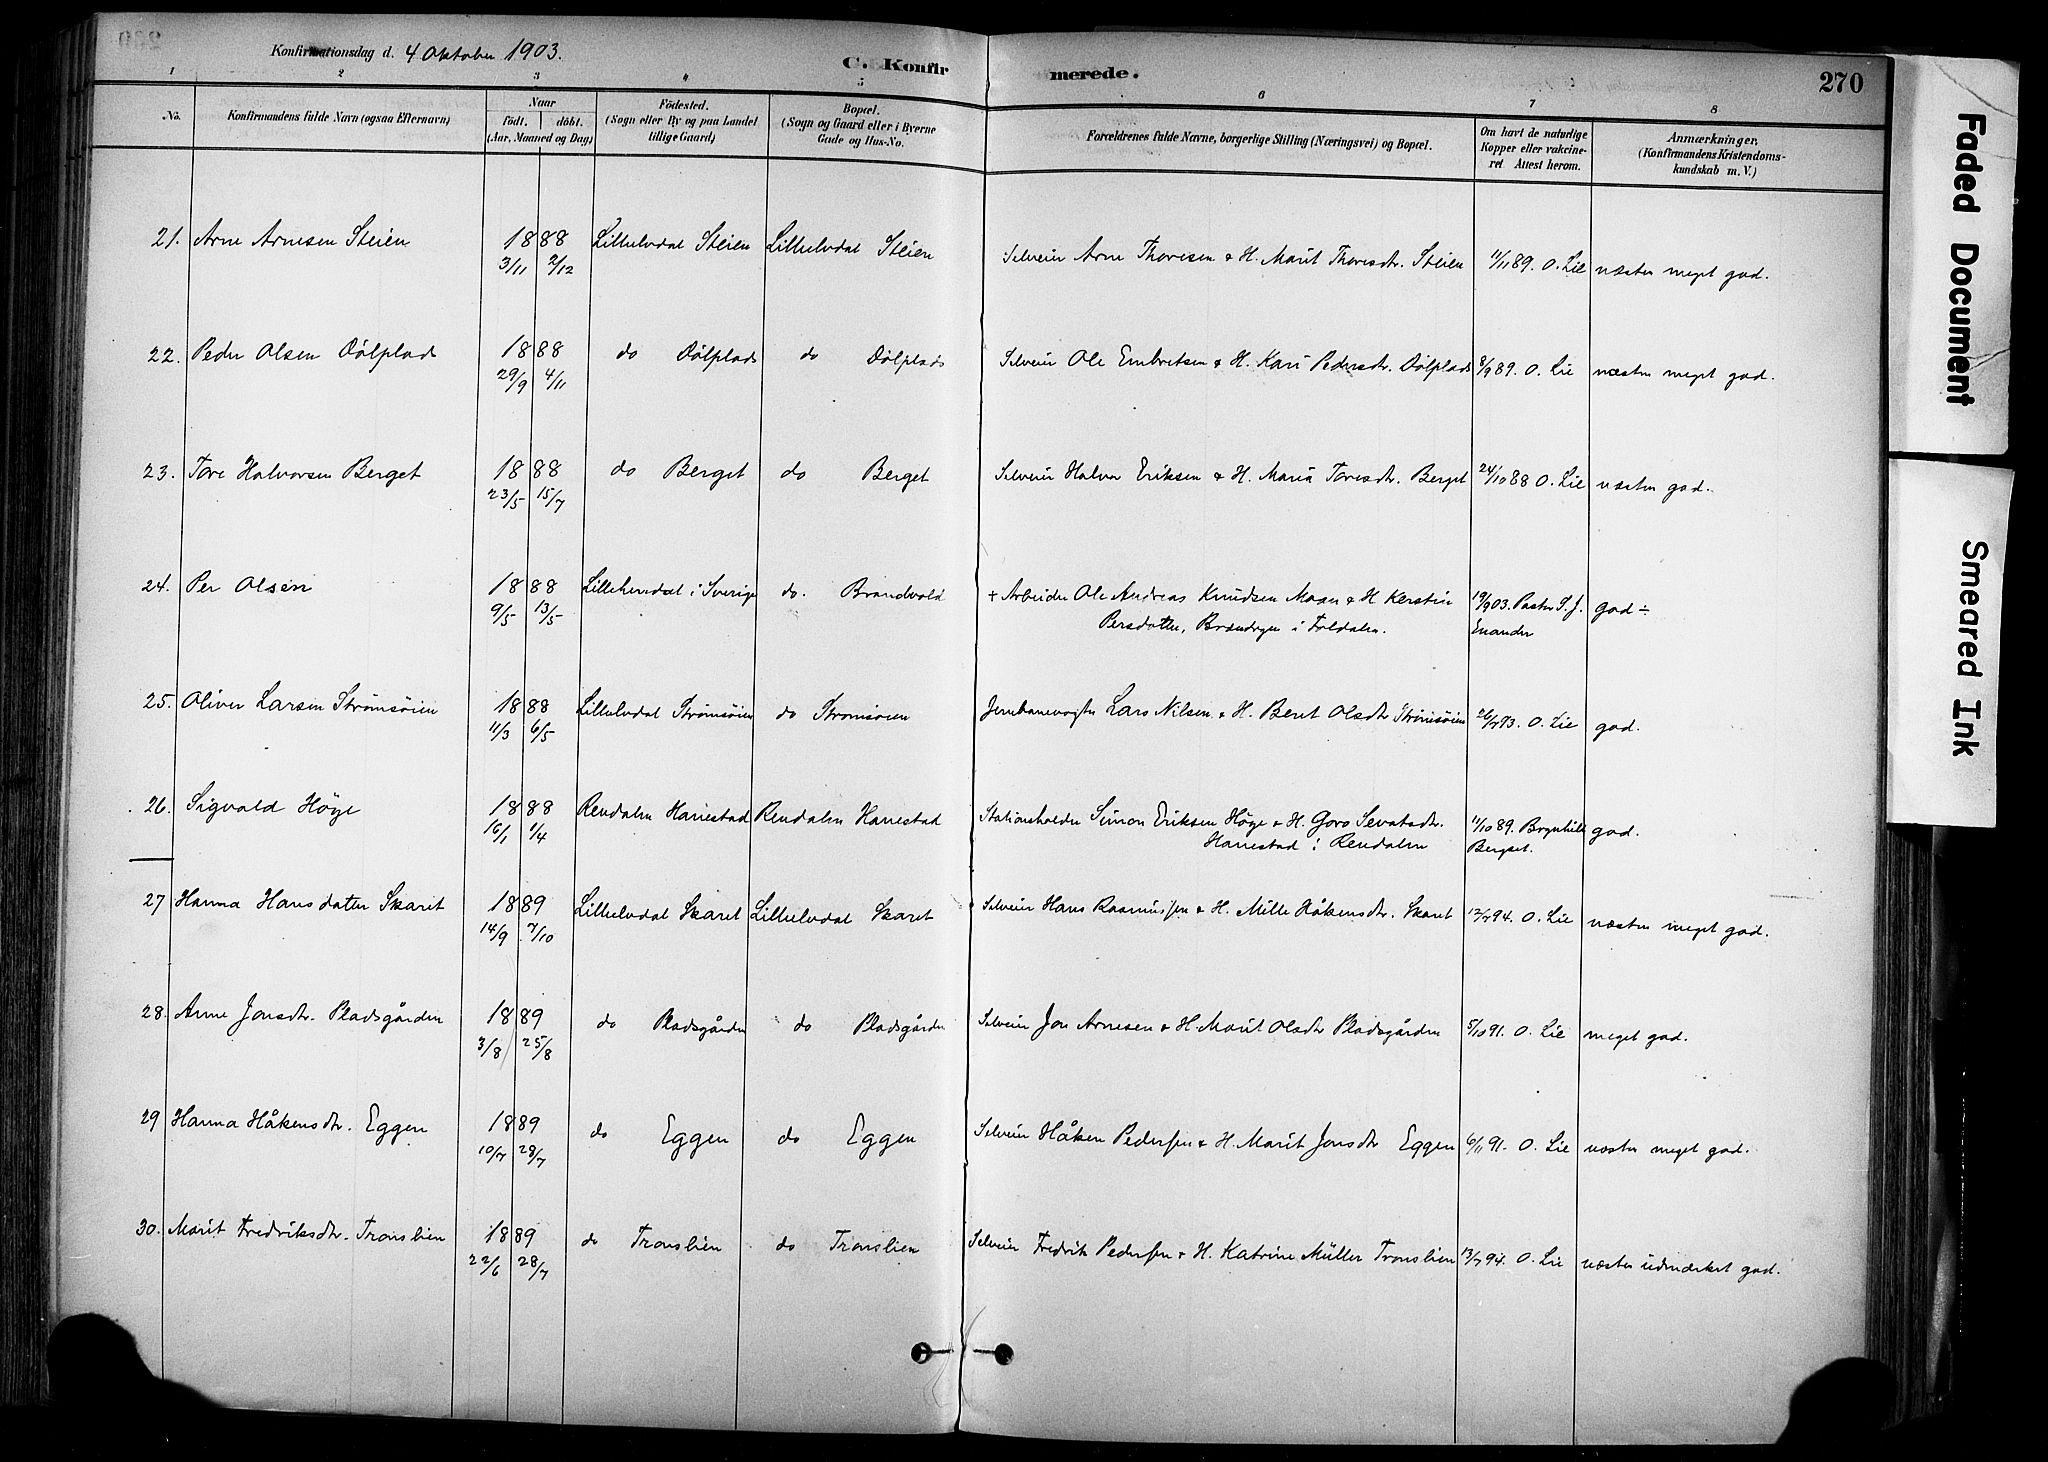 Konfirmationsdag d. 4 Oktober 1903.
C. Konfirmerede.
270
1 2 3 4 5 6 7 8
No. Konfirmandens fulde Navn (ogsaa Efternavn) Naar födt. döbt. (Aar, Maaned og Dag) Födested. (Sogn eller By og paa Landet tillige Gaard) Bopæl. (Sogn og Gaard eller i Byerne Gade og Hus-No. Forældrenes fulde Navne, borgerlige Stilling (Næringsvei) og Bopæl. Om havt de naturlige Kopper eller vakcineret Attest herom. Anmærkninger. (Konfirmandens Kristendomskundskab m. V.)
21. Arne Arnesen Steien 1888 3/11 2/12 Lilleelvdal Steien Lilleelvdal Steien Selveier Arne Thoresen & H. Marit Thoresdtr. Steien 11/11 89. O. Lie næsten meget god.
22. Peder Olsen Dölplads 1888 29/9 4/11 do Dölplads do Dölplads Selveier Ole Embretsen & H. Kari Pedersdtr. Dölplads 8/9 89. O. Lie næsten meget god.
23. Tore Halvorsen Berget 1888 23/5 15/7 do Berget do Berget Selveier Halvor Eriksen & H. Maria Toresdtr. Berget 24/10 88 O. Lie næsten god.
24. Per Olsen 1888 9/5 13/5 Lilleherrdal i Sverige do. Brandvold + Arbeider Ole Andreas Knudsen Moan & H. Kerstin
Persdatter, i Foldalen. 19/9 03. Pastor S. J. Enander god ÷
25. Oliver Larsen Strömsöien 1888 11/3 6/5 Lilleelvdal Strömsöien do Strömsöien Jernbanevogter Lars Nilsen & H. Berit Olsdtr Strömsöien 26/7 93. O. Lie god.
26. Sigvald Höye 1888 16/1 1/4 Rendalen Hanestad Rendalen Hanestad Stationsholder Simon Eriksen Höye & H. Goro Sevatsdtr.
Hanestad i Rendalen 11/10 89. Brynhild Bergset. god.
27 Hanna Hansdatter Skaret 1889 14/9 7/10 Lilleelvdal Skaret Lilleelvdal Skaret Selveier Hans Rasmussen & H. Mille Håkensdtr. Skaret 13/7 94. O. Lie næsten meget god.
28. Anne Jonsdtr. Pladsgården 1889 3/8 25/8 do Pladsgården do Pladsgården Selveier Jon Arnesen & H. Marit Olsdtr Pladsgården 5/10 91. O. Lie meget god.
29 Hanna Håkensdtr. Eggen 1889 10/7 28/7 do Eggen do Eggen Selveier Håken Pedersen & H. Marit Jonsdtr Eggen 6/11 91. O. Lie næsten meget god.
30. Marit Fredriksdtr. Tronslien 1889 22/6 28/7 do Tronslien do Tronslien Selveier Fredrik Pedersen & H. Katrine Müller Tronslien 13/7 94. O. Lie næsten udmærket god.
Faded Document
Smeared Ink